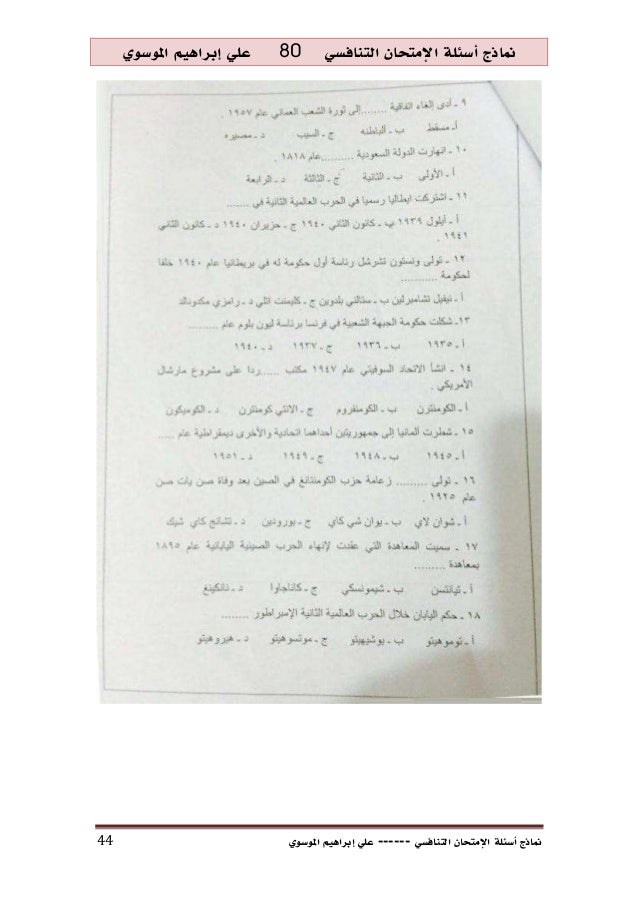 نماذج أسئلة الإمتحان التنافسي 80 علي إبراهيم الموسوي
٩ ـ أدى إلغاء اتفاقية ........إلى ثورة الشعب العماني عام ١٩٥٧ .
أ ـ مسقط ب ـ ألباطنه ج ـ السيب د ـ مصيره
١٠ ـ انهارت الدولة السعودية ..........عام ١٨١٨ .
أ ـ الأولى ب ـ الثانية ج ـ الثالثة د ـ الرابعة
١١ ـ اشتركت ايطاليا رسميا في الحرب العالمية الثانية في .......
أ ـ أيلول ١٩٣٩ ب ـ كانون الثاني ١٩٤٠ ج ـ حزيران ١٩٤٠ د ـ كانون الثاني
١٩٤١ .
١٢ ـ تولى ونستون تشرشل رئاسة أول حكومة له في بريطانيا عام ١٩٤٠ خلفا
لحكومة ...........
أ ـ نيفيل تشامبرلين ب ـ ستالني بلدوين ج ـ كليمنت اتلي د ـ رامزي مكدونالد
١٣ـ شكلت حكومة الجبهة الشعبية في فرنسا برئاسة ليون بلوم عام .........
أ ـ ١٩٣٥ ب ـ ١٩٣٦ ج ـ ١٩٣٧ د ـ ١٩٤٠
١٤ ـ انشأ الاتحاد السوفيتي عام ١٩٤٧ مكتب ......ردا على مشروع مارشال
الأمريكي .
أ ـ الكومنترن ب ـ الكومنفروم ج ـ الانتي كومنترن د ـ الكوميكون
١٥ ـ شطرت ألمانيا إلى جمهوريتين أحداهما اتحادية والأخرى ديمقراطية عام .....
أ ـ ١٩٤٥ ب ـ ١٩٤٨ ج ـ ١٩٤٩ د ـ ١٩٥١
١٦ ـ تولى ......... زعامة حزب الكومنتانغ في الصين بعد وفاة صن يات صن
عام ١٩٢٥ .
أ ـ شوان لاي ب ـ يوان شي كاي ج ـ بورودين د ـ تشانج كاي شيك
١٧ ـ سميت المعاهدة التي عقدت لإنهاء الحرب الصينية اليابانية عام ١٨٩٥
بمعاهدة .........
أ ـ تيانتسن ب ـ شيمونسكي ج ـ كاناجاوا د ـ نانكينغ
١٨ ـ حكم اليابان خلال الحرب العالمية الثانية الإمبراطور ........
أ ـ توموهيتو ب ـ يوشيهيتو ج ـ موتسوهيتو د ـ هيروهيتو
نماذج أسئلة الإمتحان التنافسي ------ علي إبراهيم الموسوي 44